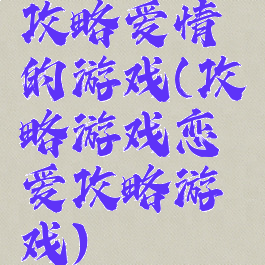 攻略爱情
的游戏(攻
略游戏恋
爱攻略游
戏)